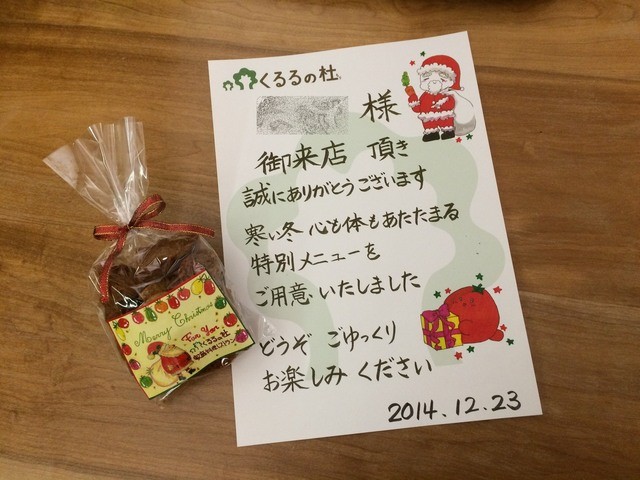 くるるの杜
様
御来店 頂き
誠にありがとうございます
寒い冬 心も体もあたたまる
特別メニューを
ご用意いたしました
どうぞ ごゆっくり
お楽しみ ください
2014.12.23
Merry Christmas
For You
くるるの杜